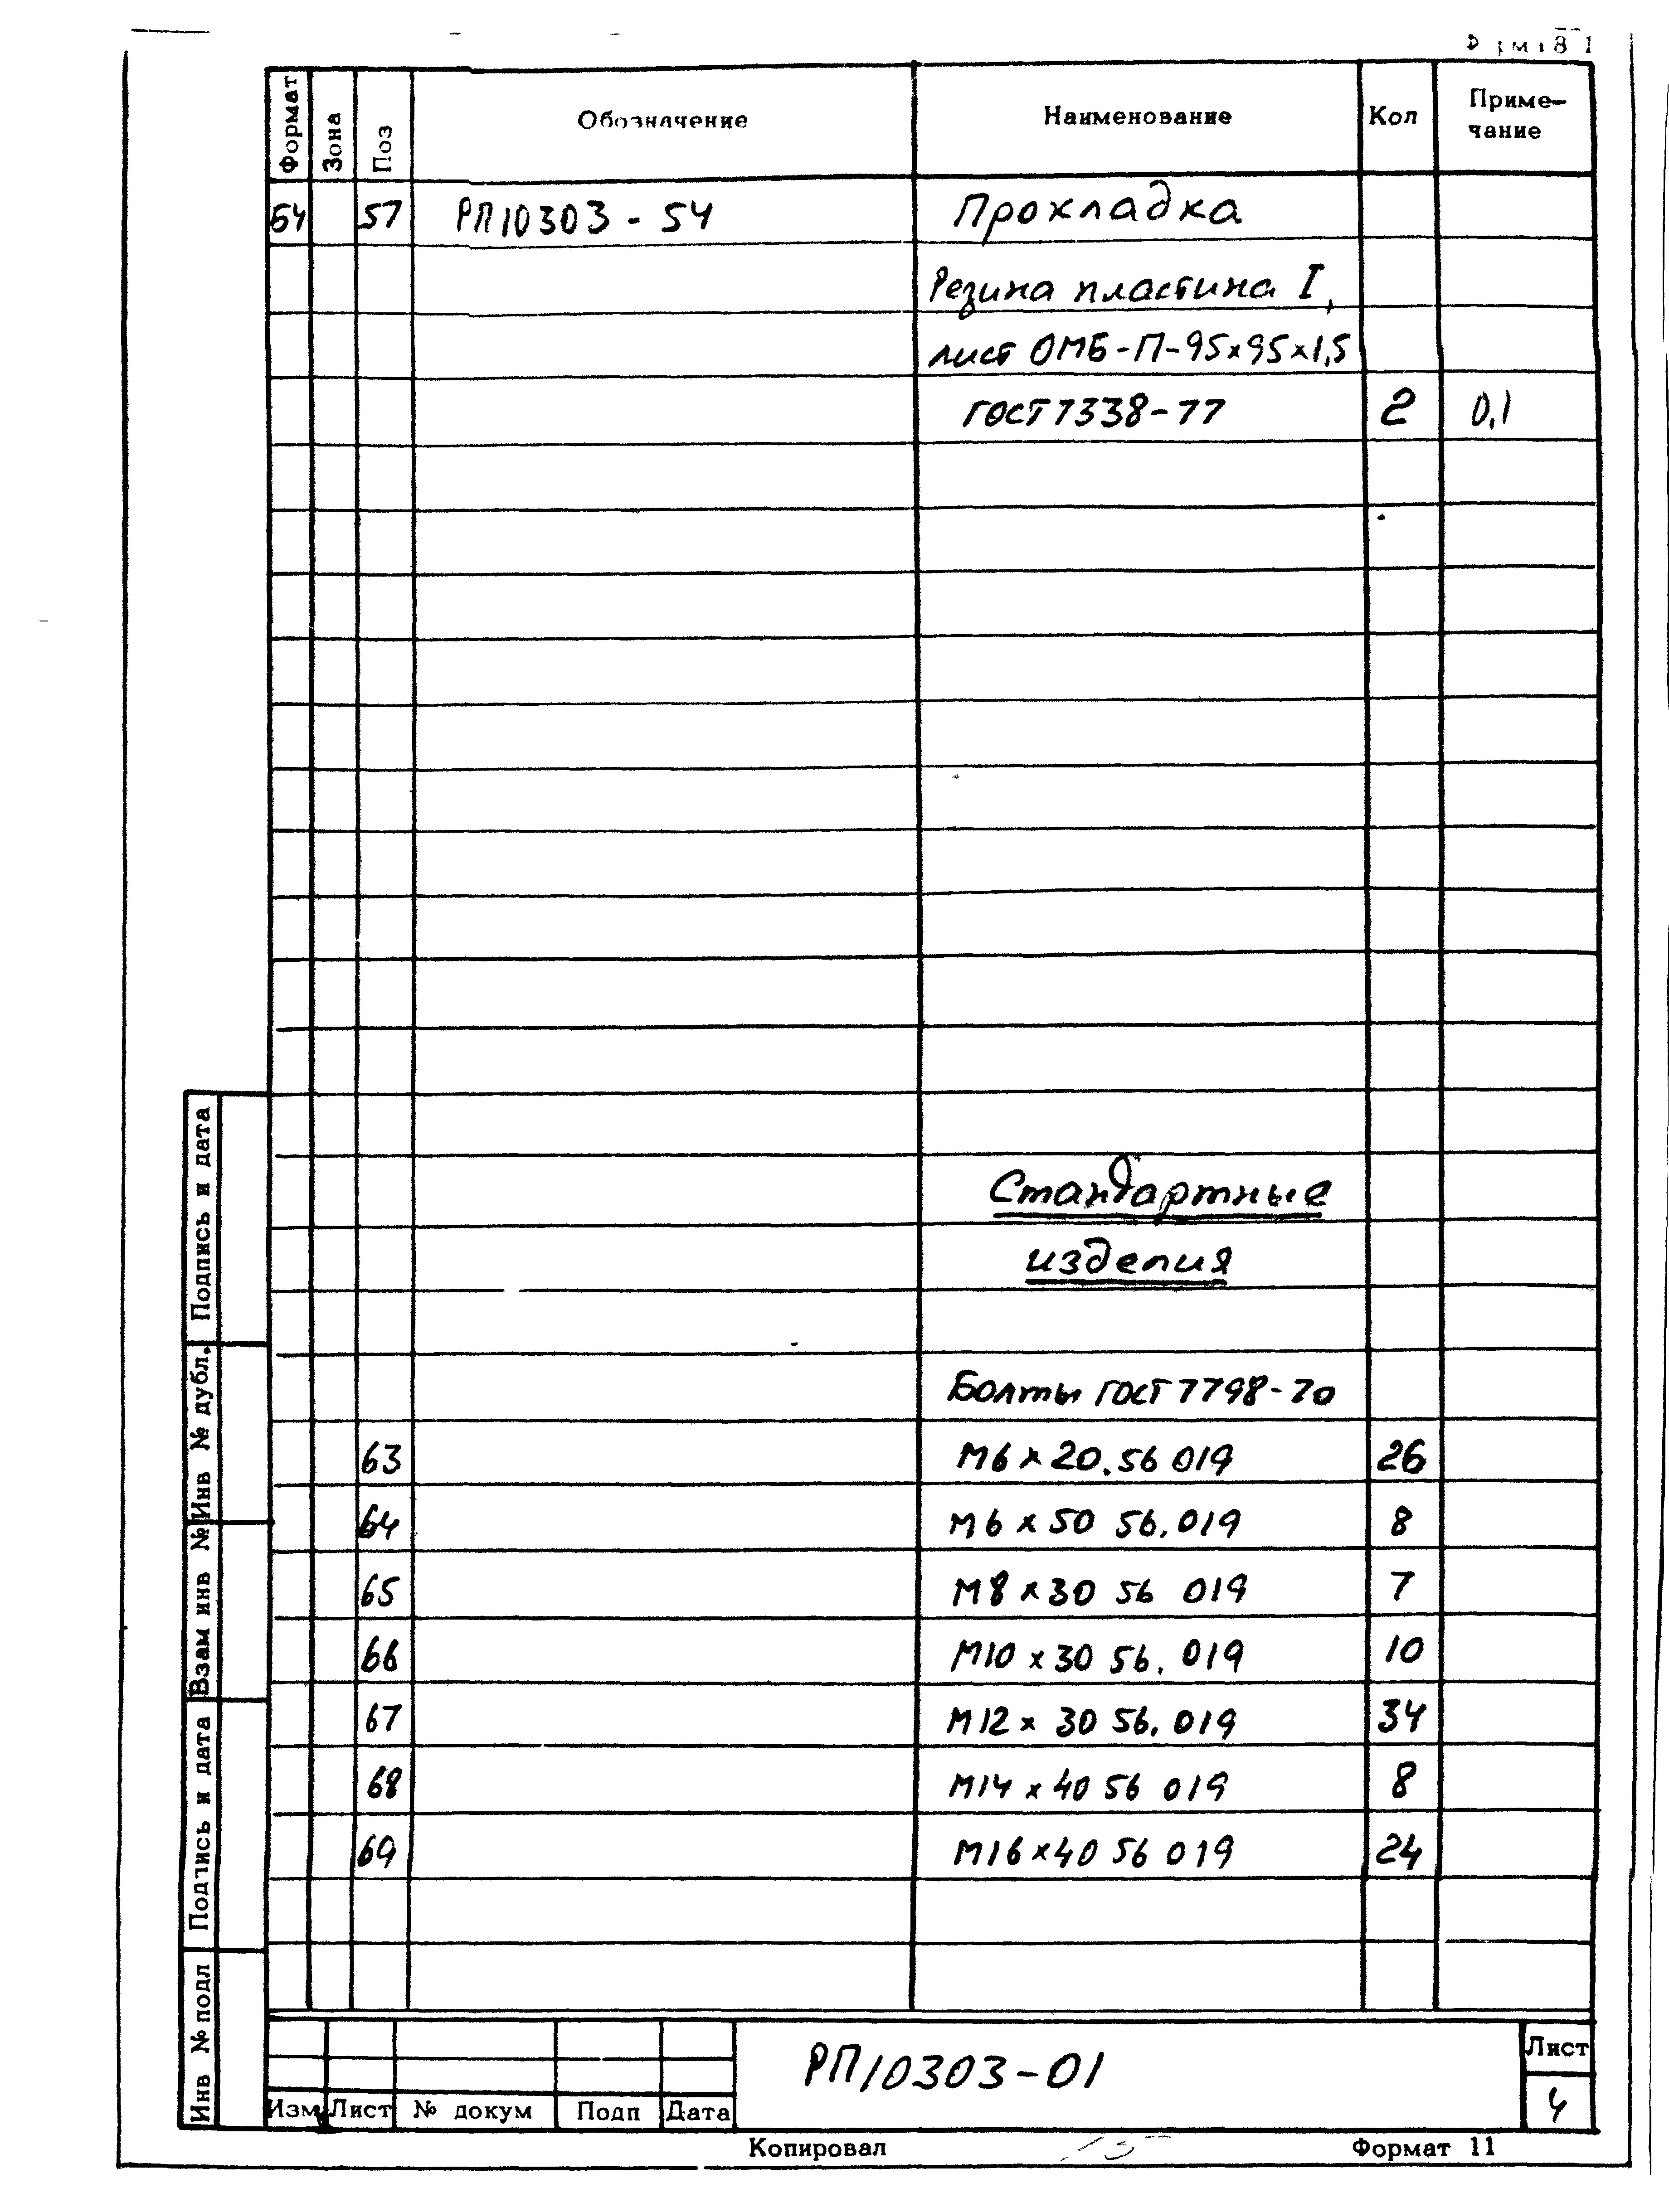 Формат
Зона
Поз
Обозначение
Наименование
Кол
Приме-
чание
БЧ 57 РП10303-54 Прохладка
Резина пластина I,
лист ОМБ-П-95х95х1,5
ГОСТ 7338-77 2 0,1
Стандартные
изделия
Болты ГОСТ 7798-70
63 М6х20.56 019 26
64 М6х50 56.019 8
65 М8х30 56 019 7
66 М10х30 56.019 10
67 М12х30 56.019 34
68 М14х40 56 019 8
69 М16х40 56 019 24
Подпись и дата
Инв № дубл.
Взам инв №
Подпись и дата
Инв № подл
РП10303-01
Лист
4
Изм Лист № докум Подп Дата
Копировал
Формат 11